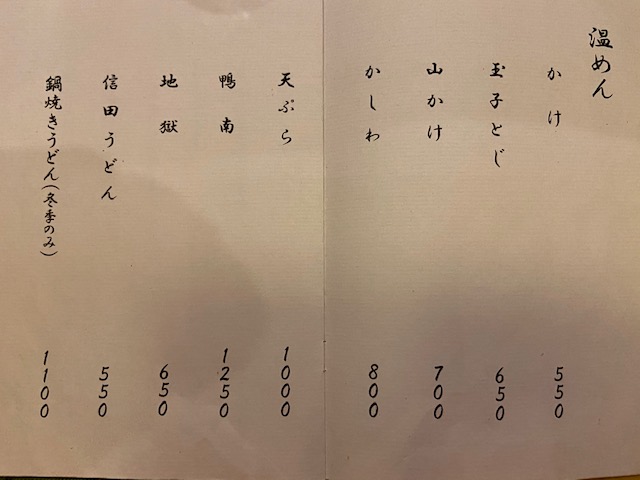 温めん
かけ 550
玉子とじ 650
山かけ 700
かしわ 800
天ぷら 1000
鴨南 1250
地獄 650
信田うどん 550
鍋焼きうどん(冬季のみ) 1100